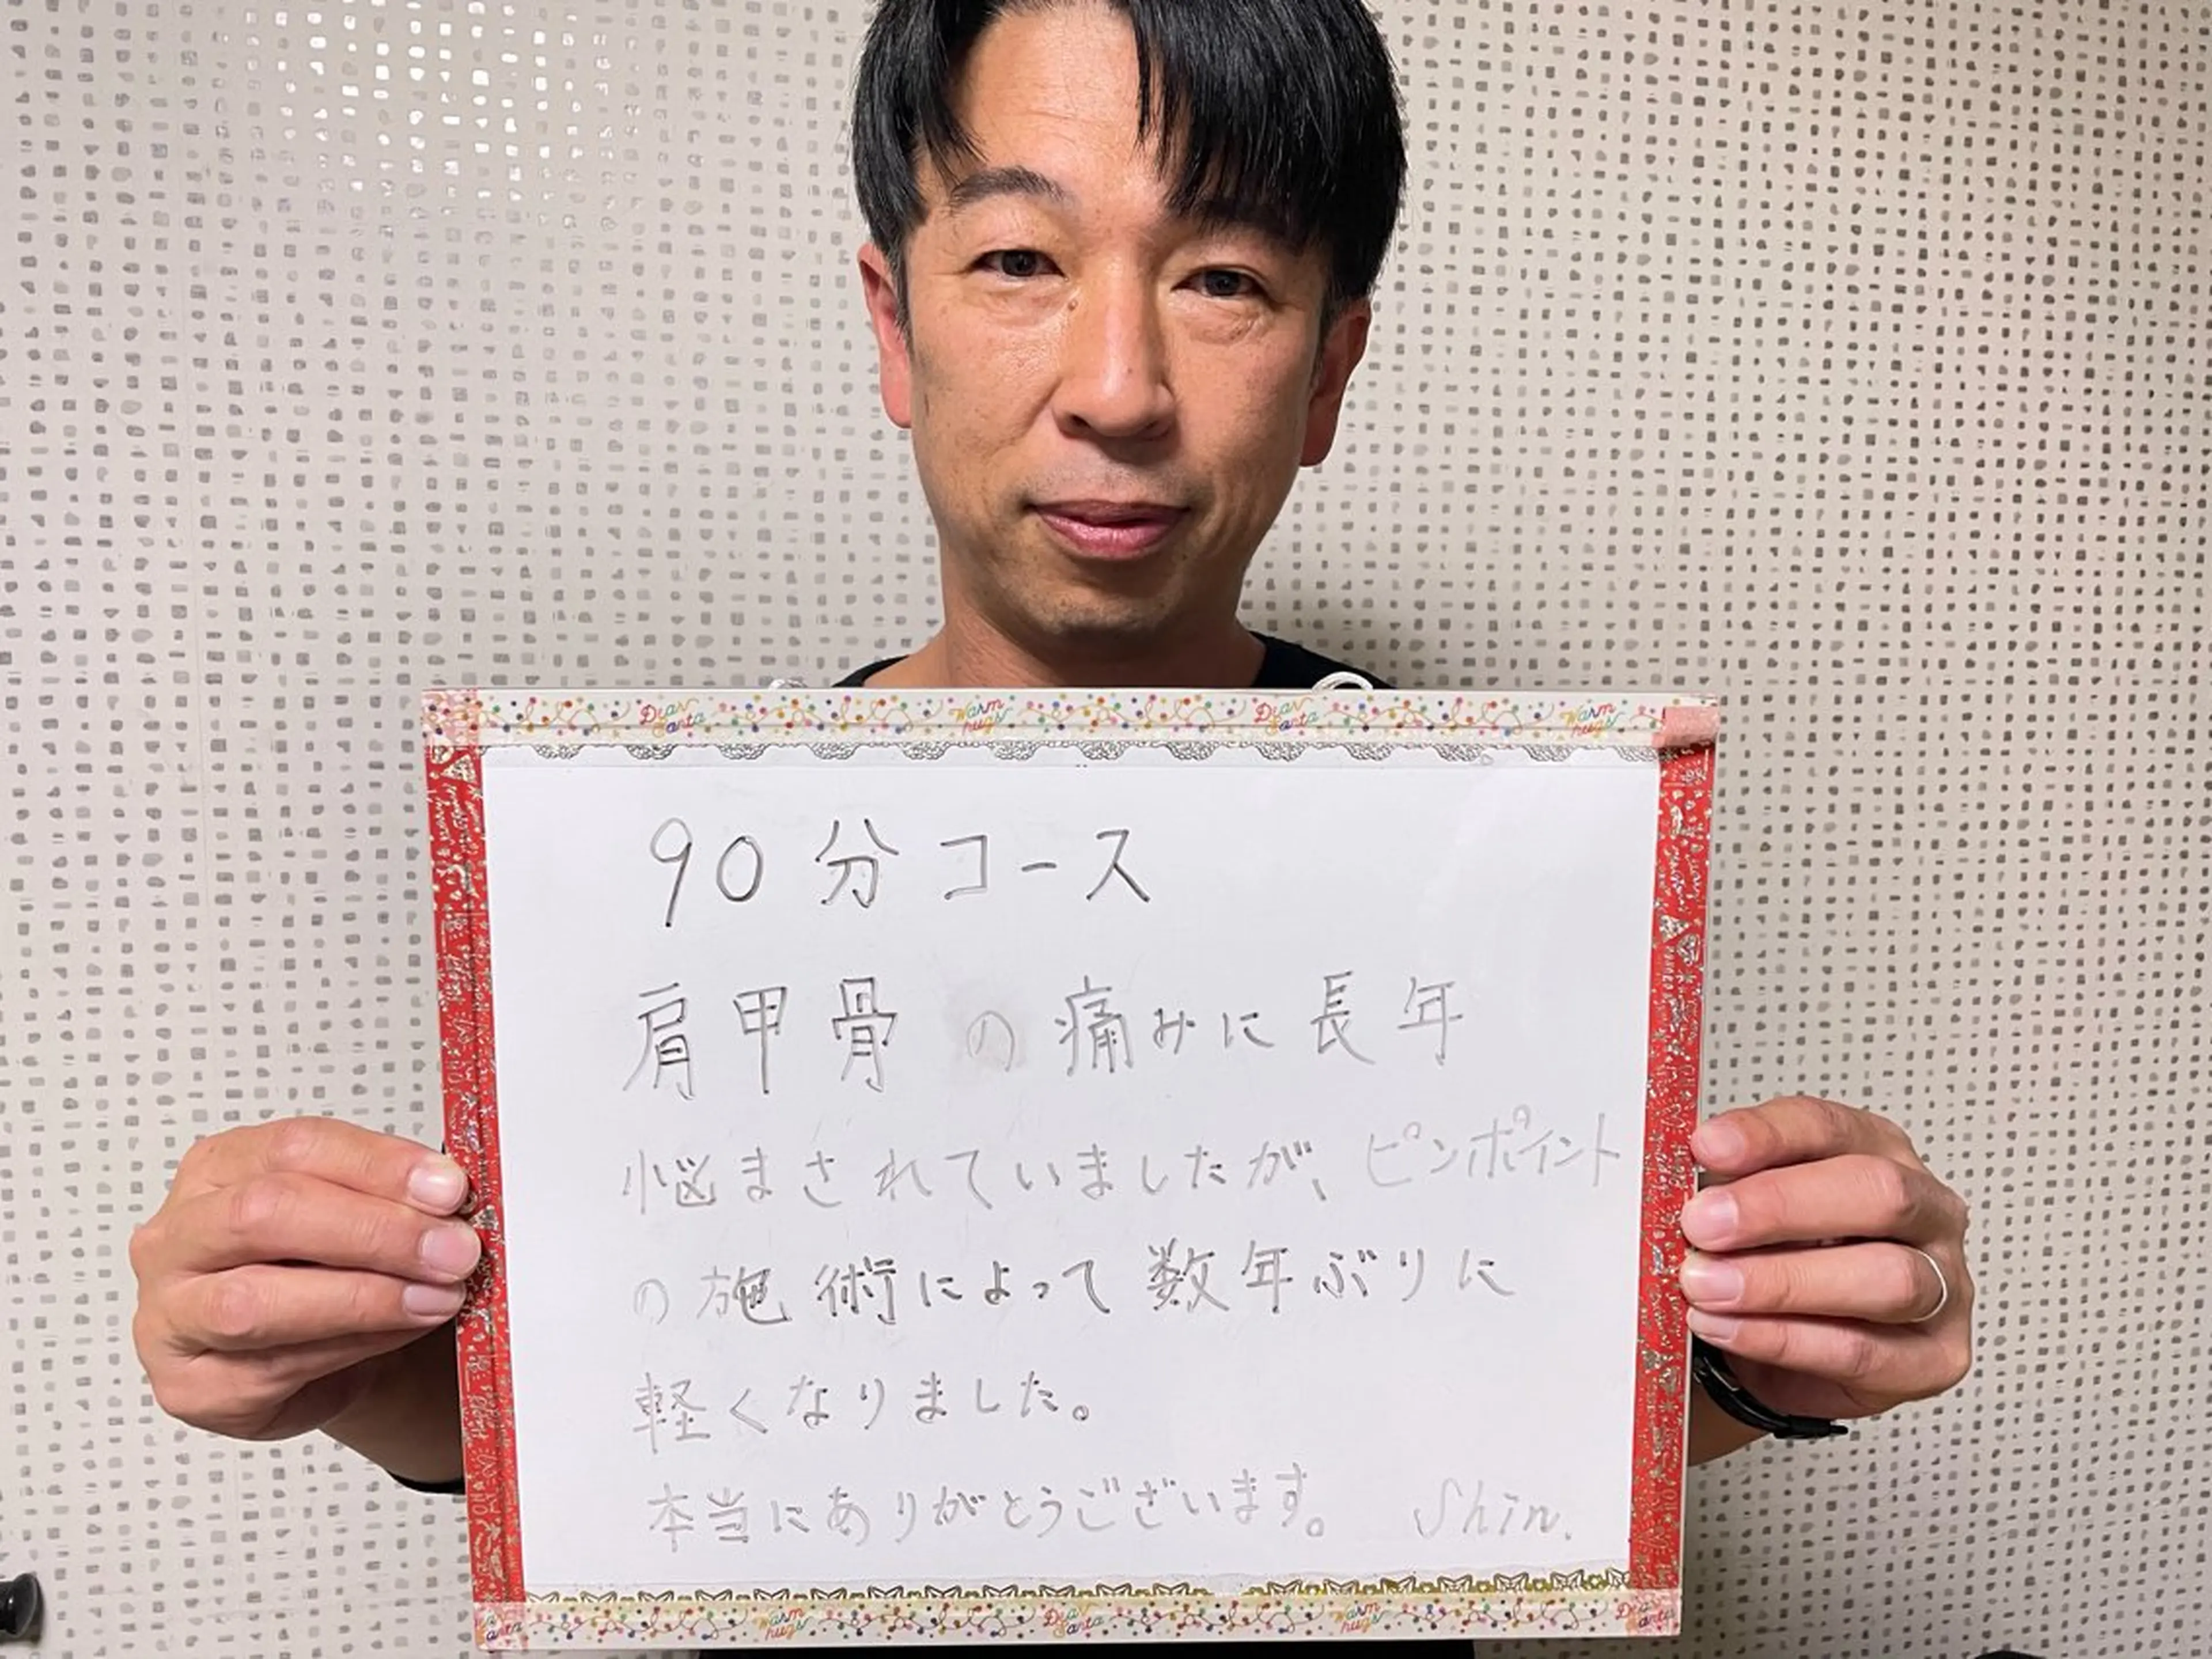 Dear Santa Warm hugs Dear Santa Warm hugs
90分コース
肩甲骨の痛みに長年
悩まされていましたが、ピンポイント
の施術によって数年ぶりに
軽くなりました。
本当にありがとうございます。 Shin.
Warm hugs Dear Santa Warm hugs Dear Santa